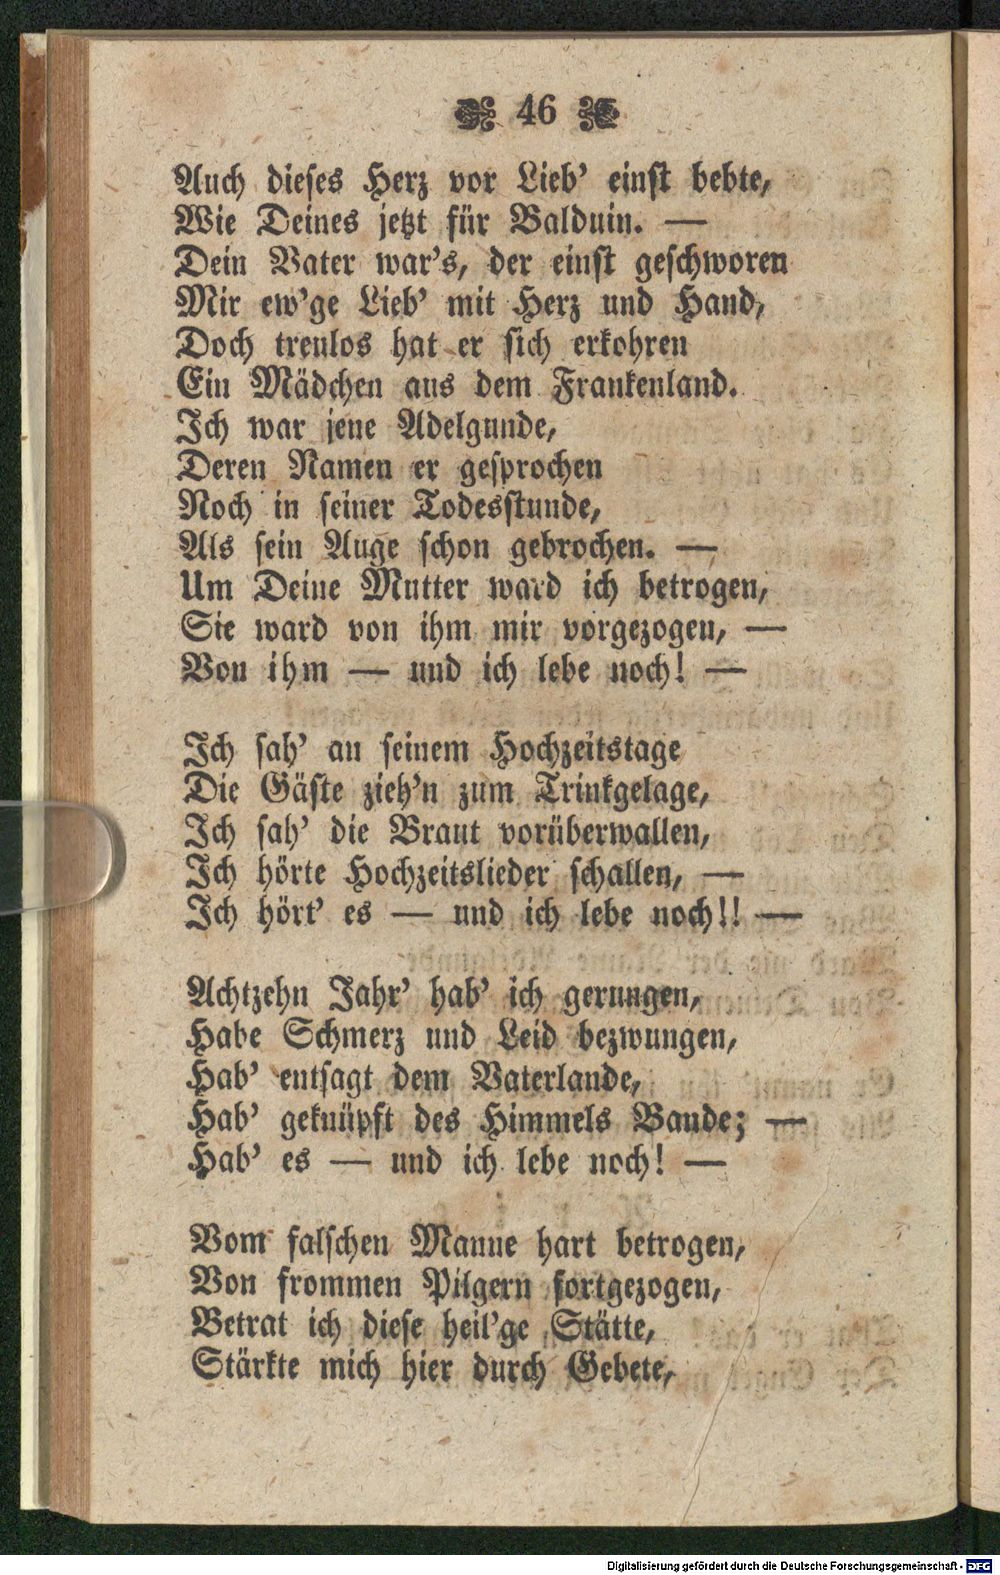 46
Auch dieses Herz vor Lieb' einst bebte,
Wie Deines jetzt für Balduin. —
Dein Vater war's, der einst geschworen
Mir ew'ge Lieb' mit Herz und Hand,
Doch treulos hat er sich erkohren
Ein Mädchen aus dem Frankenland.
Ich war jene Adelgunde,
Deren Namen er gesprochen
Noch in seiner Todesstunde,
Als sein Auge schon gebrochen. —
Um Deine Mutter ward ich betrogen,
Sie ward von ihm mir vorgezogen, —
Von ihm — und ich lebe noch! —
Ich sah' an seinem Hochzeitstage
Die Gäste zieh'n zum Trinkgelage,
Ich sah' die Braut vorüberwallen,
Ich hörte Hochzeitslieder schallen, —
Ich hört' es — und ich lebe noch!! —
Achtzehn Jahr' hab' ich gerungen,
Habe Schmerz und Leid bezwungen,
Hab' entsagt dem Vaterlande,
Hab' geknüpft des Himmels Bande; —
Hab' es — und ich lebe noch! —
Vom falschen Manne hart betrogen,
Von frommen Pilgern fortgezogen,
Betrat ich diese heil'ge Stätte,
Stärkte mich hier durch Gebete,
Digitalisierung gefördert durch die Deutsche Forschungsgemeinschaft - DFG